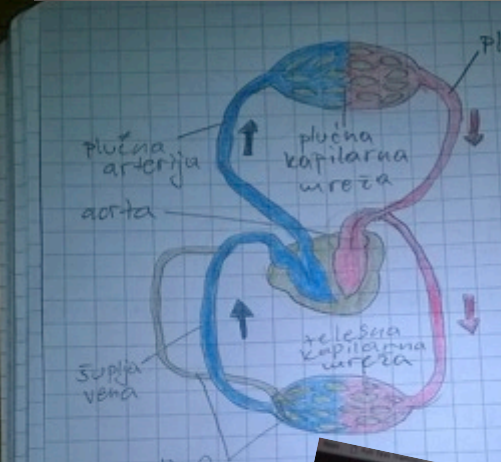 pl
plučna
arterija
plučna
kapilarna
mreža
aorta
telesna
kapilarna
mreža
šuplja
vena